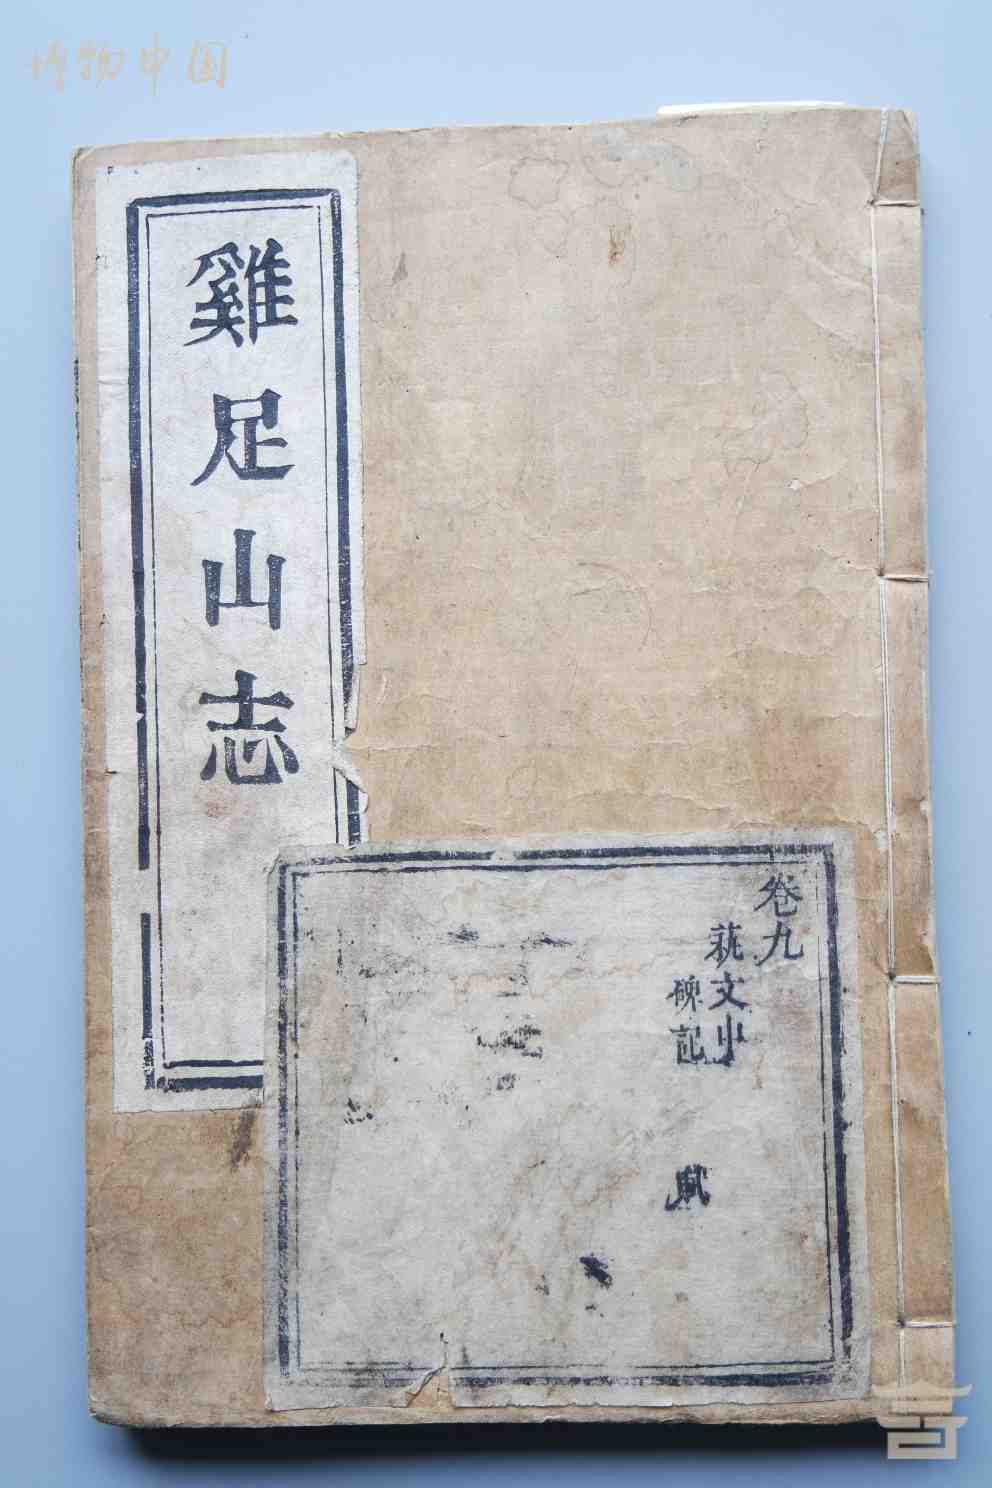 博物中国
雞足山志
卷九
藝文中
碑記